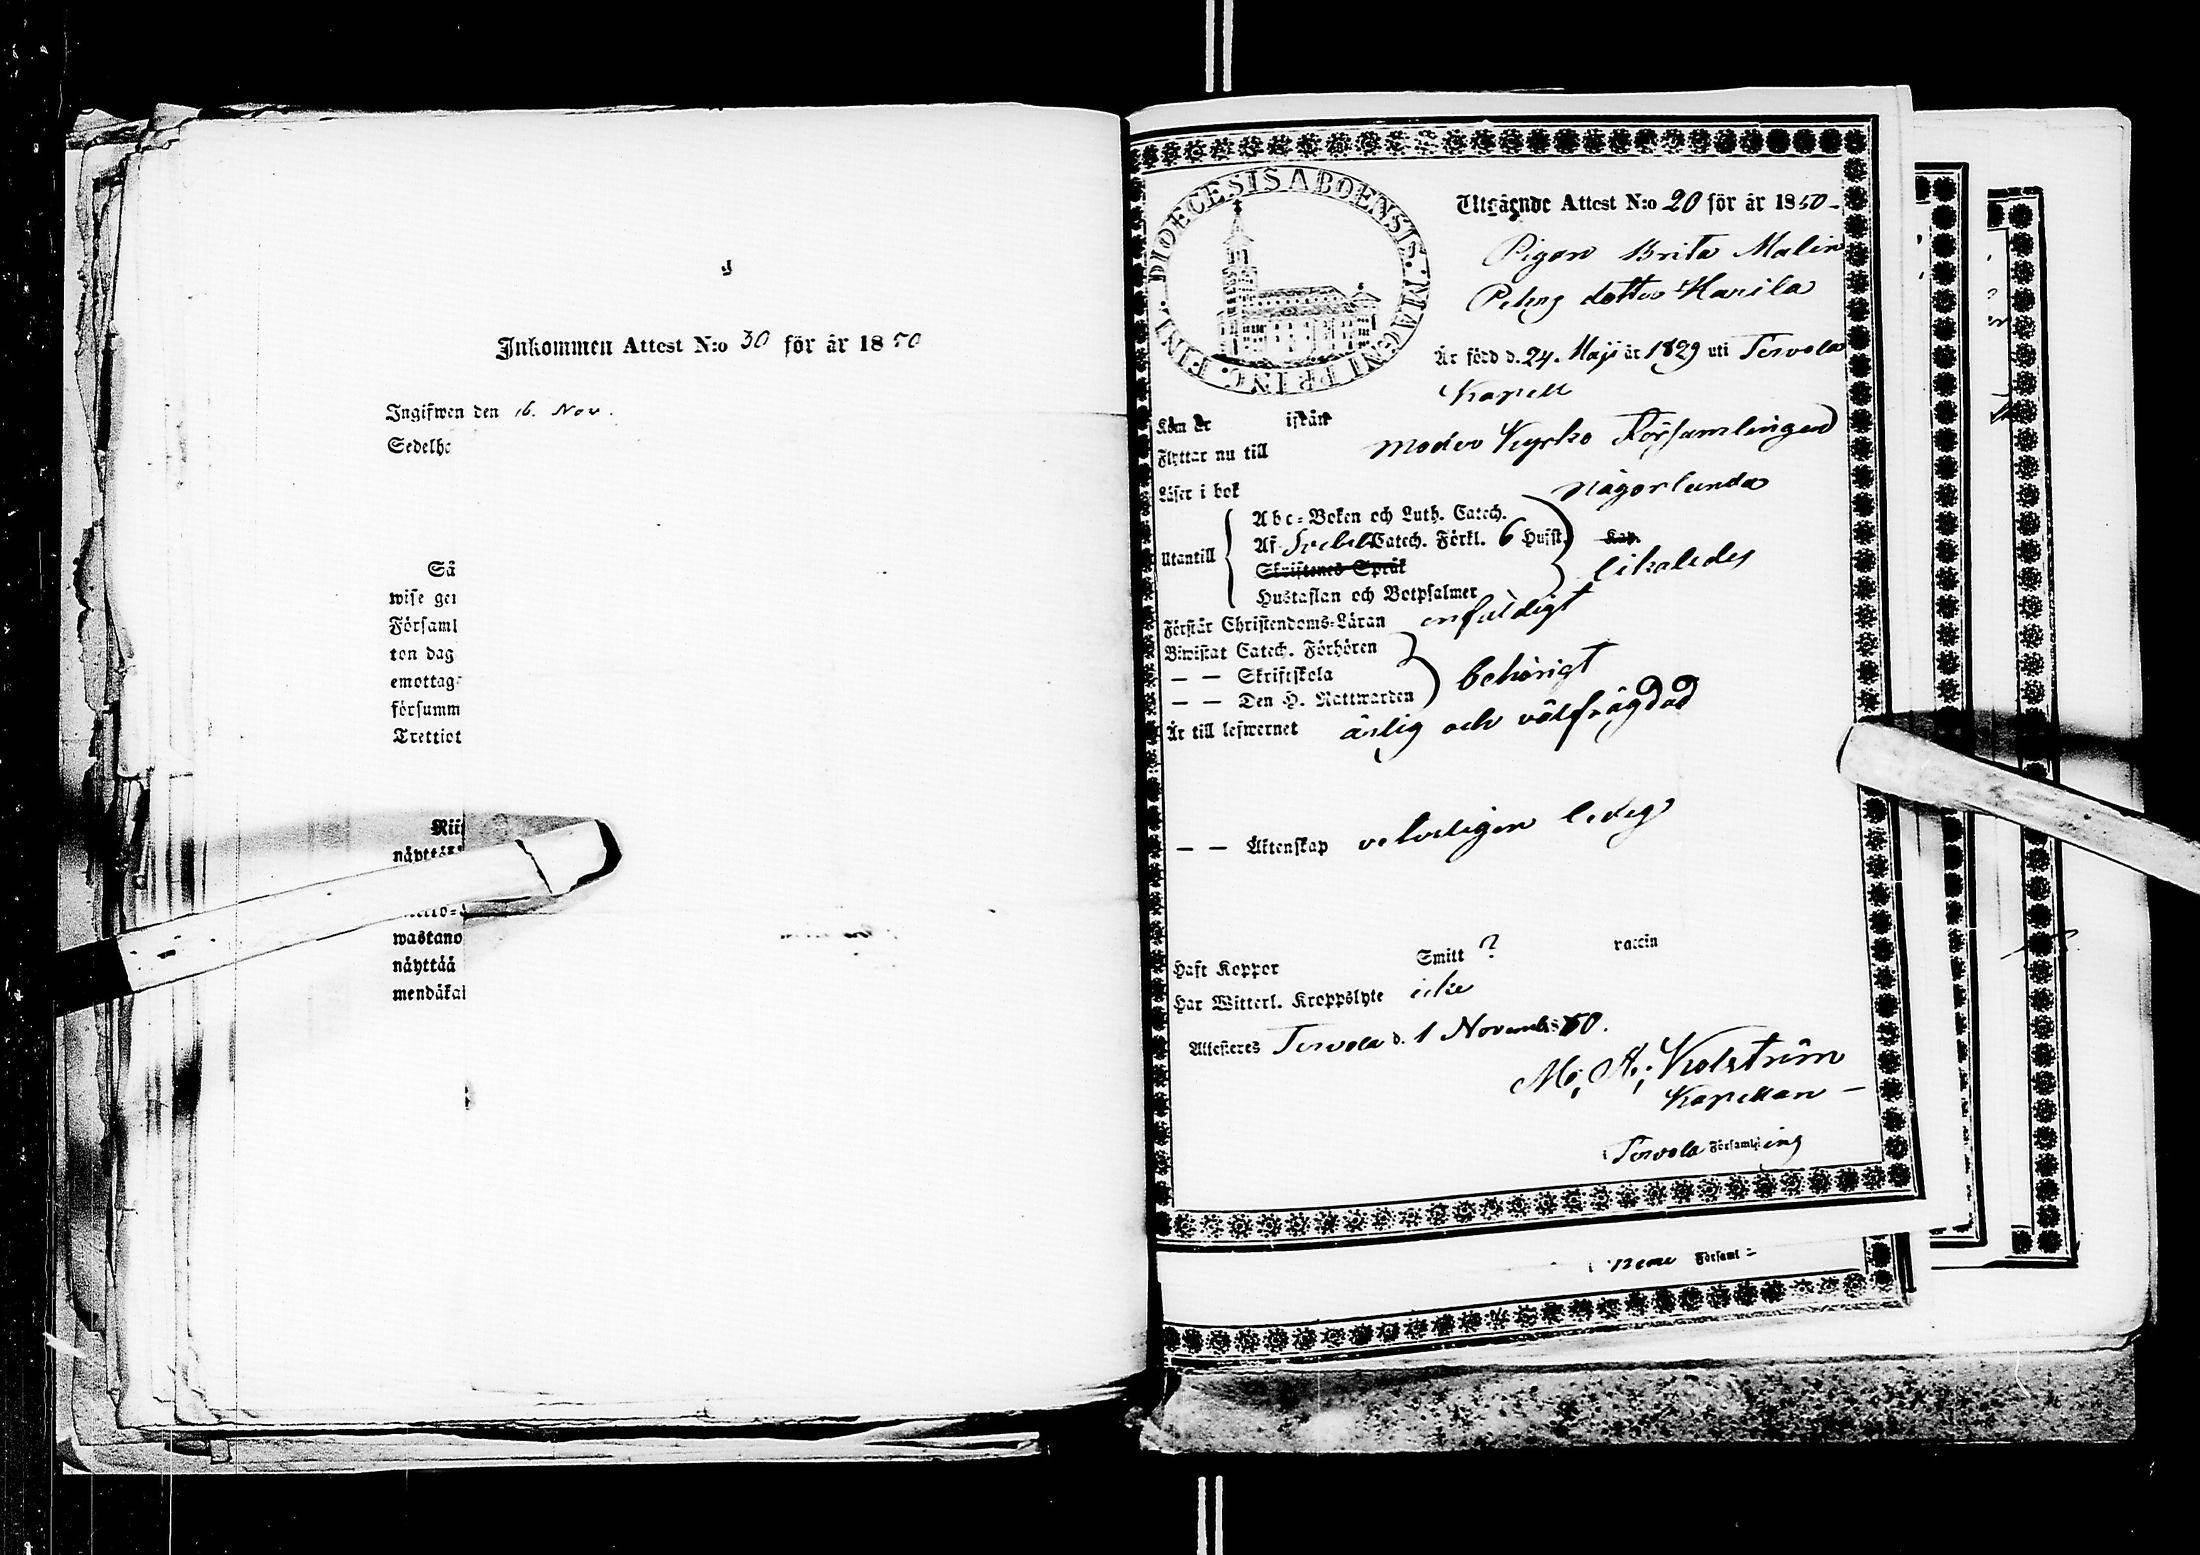 Inkommen Attest N:o 30 för år 1850
Ingifwen den 16. Nov.
Sedelh
Så
wise ge
Församl
ton dag
emottag
försumm
Trettiot
Rii
näytt
wastano
näyttää
mendäkä
DIOECESIS ABOENSIS. MAGNI PRINC. FINL.
Utgående Attest N:o 20 för år 1850
Pigan Brita Malin
dotter Karila
Är född d. 24. Maji år 1829 uti Tervola
Kapell
Kom år ifrån
Flyttar nu till Moder Kyrko Församlingen
Läser i bok någorlunda
Utantill
Abc-Boken och Luth. Catech.
Af Svebel Catech. Förkl. 6 Hufst. Kap.
Skriftenes Språk likaledes
Hustaflan och Botpsalmer
Förstår Christendoms-Läran enfaldigt
Biwistat Catech. Förhören
— — Skriftskola behörigt
— — Den H. Nattwarden
Är till lefwernet ärlig och välfrägdad
— — Äktenskap veterligen ledig
Haft Koppor Smitt ? vaccin
Har Witterl. Kroppslyte icke
Attesteres Tervola d. 1 Novemb. 1850.
M. A. Kolström
Kapellan —
Tervola Församling
Församl